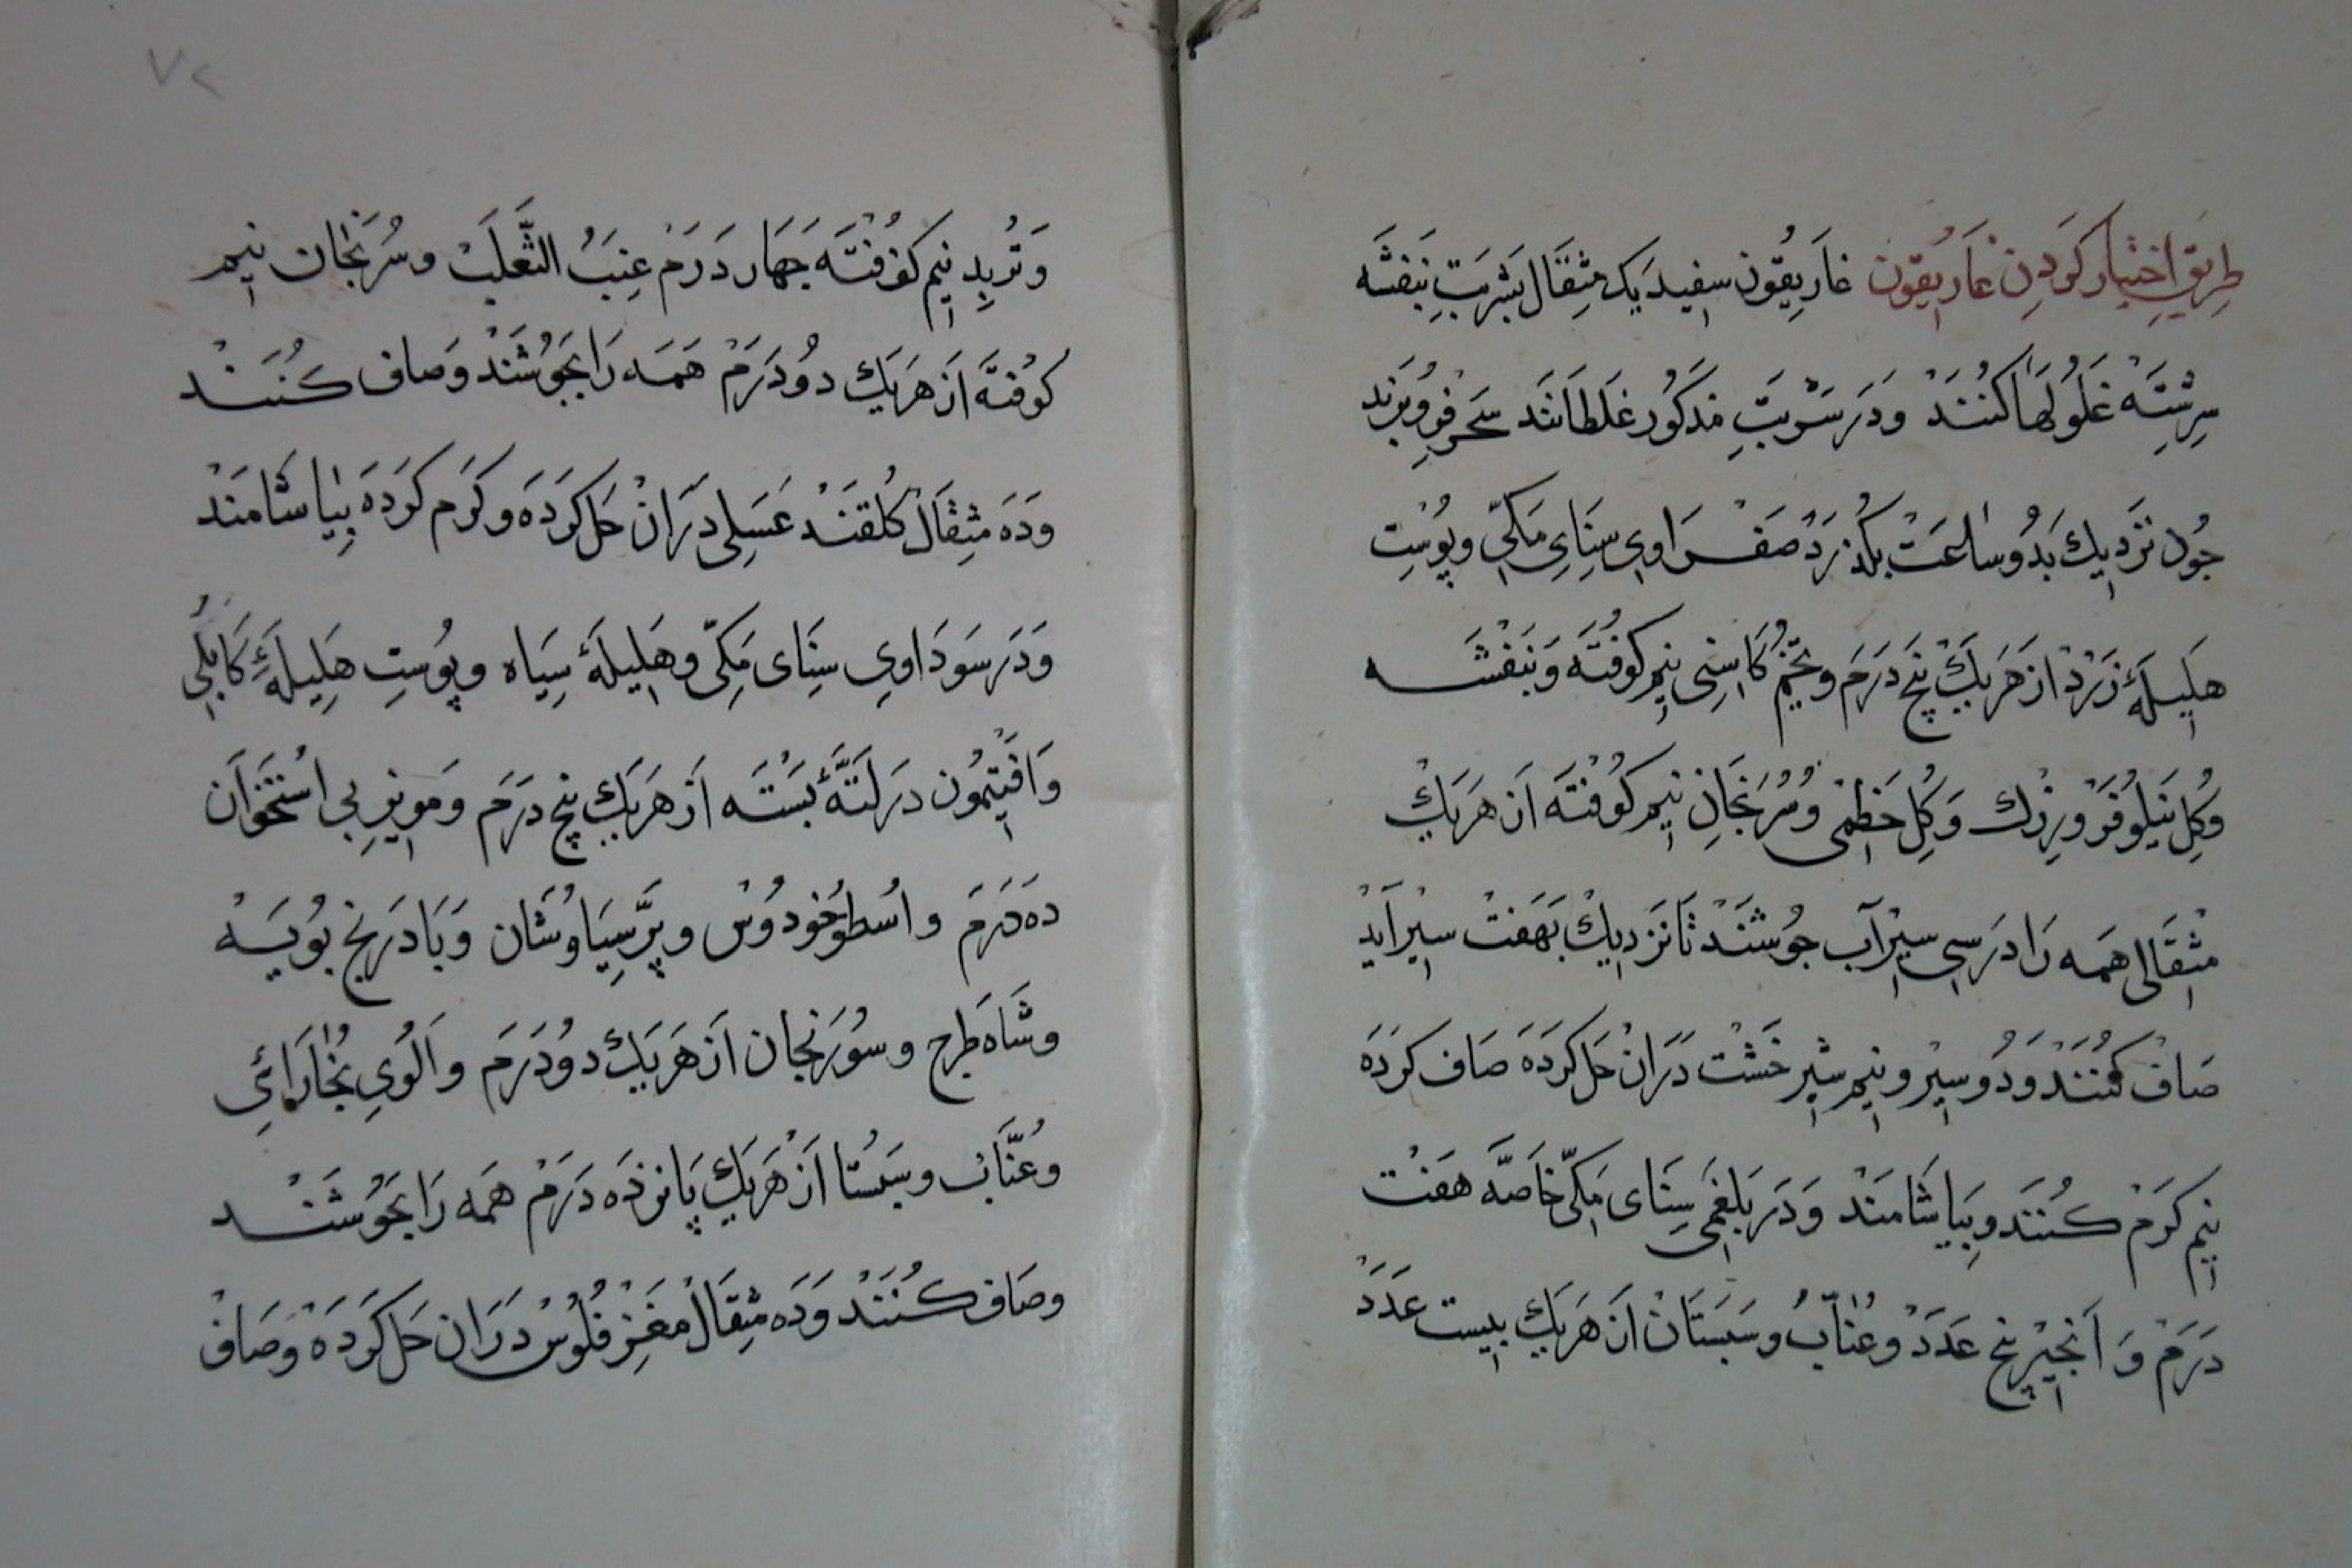 طَرِيقِ اِخْتِيَار كَرْدَنِ غَارِيقُون غَارِيقُون سفيد يَك مِثقَال بَشَربَتِ بَنَفشَه
سِرِشْتَه غَلُولَهَا كُنَنْدْ وَدَر شَرْبَتِ مَذكُور غَلطَانَند سَحر فُرُو بَرَند
جُون نَزدِيك بَدُو سَاعَتْ بكُذرَدْ صَفرَاوِي سِنَايِ مَكّيِ وپُوسْتِ
هَلِيلَهٔ زَرْدْ اَز هَرَيَكْ پَنج دَرَم وتُخمِ كَاسِنِى نِيم كوُفتَه وَبَنَفشَه
وَكُلِ نِيلُوفَرْ وزِرِك وَكُلِ خَطْمِى وَسُرَنجَانِ نِيم كُوفْتَه اَز هَرَيَكْ
مِثْقَالى هَمَه رَا دَر سِى سِيْر آب جُوشَنَدْ تَا نَزدِيكْ بَهَفتْ سِيْر آيَدْ
صَافْ كُنَنْدْ وَدُو سِيرْ ونِيم شِيرِ خَشْت دَرَانْ حَل كَردَه صَاف كَردَه
نِيم كَرَمْ كُنَند وبِيَاشَامَنْدْ وَدَر بَلغَمِى سِنَاى مَكّىِ خَاصَّه هَفْت
دَرَمْ وَ اَنجِيْر پَنج عَدَدْ وعُنّابُ وسَبَسْتَانْ اَز هَرَيَكْ بِيست عَدَدْ
٧٢
وَتُربِدِ نِيم كوُفْتَه جَهَار دَرَمْ عِنَبُ الثَّعلَبْ وسُرَنجَان نِيم
كوُفتَه اَز هَرَيَكْ دوُ دَرَمْ هَمَه رَا بجُوشَنْد وَصَاف كُنَنْد
وَدَه مِثقَال كُلقَنْد عَسَلِى دَرَانْ حَل كَردَه وكَرَم كَردَه بِيَاشَامَنْد
وَدَر سَودَاوِي سِنَاى مَكّى وهَلِيلَهٔ سِيَاه وپُوستِ هَلِيلَهٔ كَابُلِى
وَاَفتِيمُون دَر لَتَّهٔ بَسْتَه اَز هَرَيَك پَنج دَرَم وَمَوِيزِ بِى اسْتُخوَان
دَه دَرَم واُسْطُوخُودُوسْ وپَرَّسِيَاوُشَان وَبَادَرَنج بُويَه
وشَاه طَرج وسُورَنجَان اَز هَرَيَكْ دوُ دَرَم وَالُوىِ بُخَارَائى
وعُنَّابْ وسَبَستَا اَز هَرَيَك پَانزدَه دَرَمْ هَمَه رَا بجُوشَنْد
وصَاف كُنَنْد وَدَه مِثقَال مَغْزِ فُلُوسْ دَرَان حَل كَردَه وصَافْ